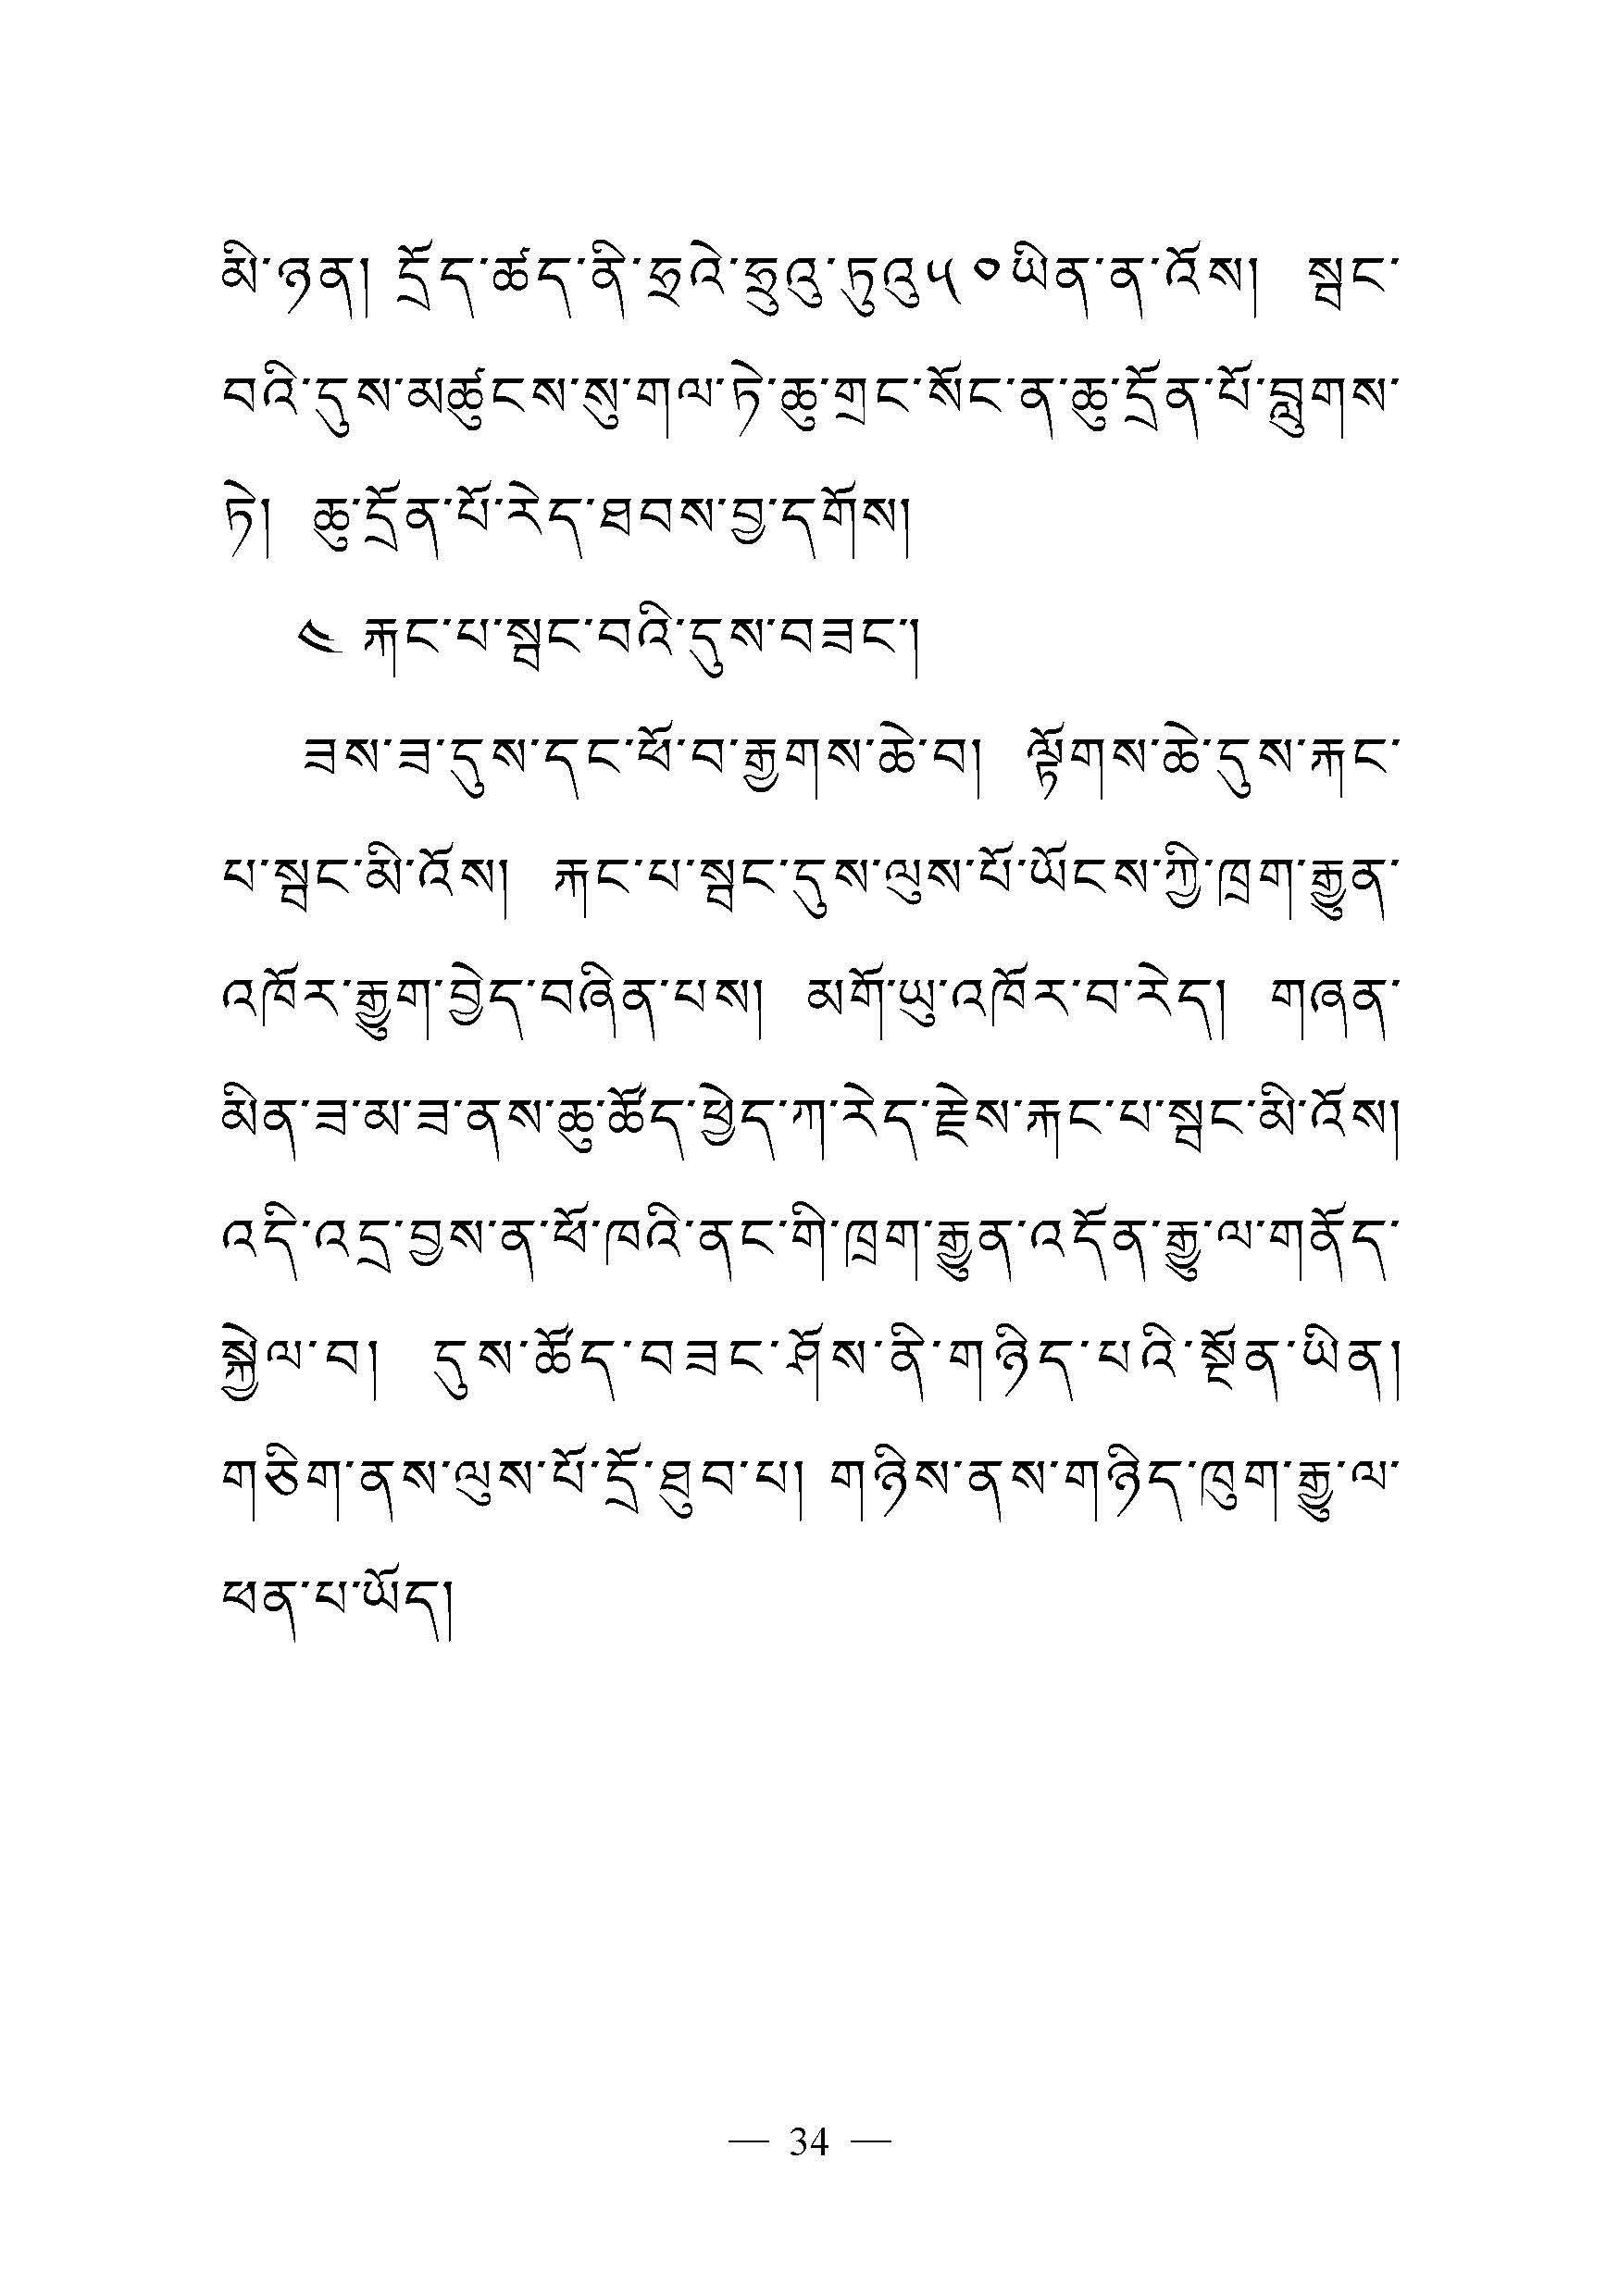 མི་ཉན། དྲོད་ཚད་ནི་ཧྲའེ་ཧྲུའུ་ཏུའུ༥༠ཡིན་ན་འོས། སྦང་
བའི་དུས་མཚུངས་སུ་གལ་ཏེ་ཆུ་གྲང་སོང་ན་ཆུ་དྲོན་པོ་བླུགས་
ཏེ། ཆུ་དྲོན་པོ་རེད་ཐབས་བྱ་དགོས།
༤ རྐང་པ་སྦང་བའི་དུས་བཟང་།
ཟས་ཟ་དུས་དང་ཕོ་བ་རྒྱགས་ཆེ་བ། ལྟོགས་ཆེ་དུས་རྐང་
པ་སྦང་མི་འོས། རྐང་པ་སྦང་དུས་ལུས་པོ་ཡོངས་ཀྱི་ཁྲག་རྒྱུན་
འཁོར་རྒྱུག་བྱེད་བཞིན་པས། མགོ་ཡུ་འཁོར་བ་རེད། གཞན་
མིན་ཟ་མ་ཟ་ནས་ཆུ་ཚོད་ཕྱེད་ཀ་རེད་རྗེས་རྐང་པ་སྦང་མི་འོས།
འདི་འདྲ་བྱས་ན་ཕོ་ཁའི་ནང་གི་ཁྲག་རྒྱུན་འདོན་རྒྱུ་ལ་གནོད་
སྐྱེལ་བ། དུས་ཚོད་བཟང་ཤོས་ནི་གཉིད་པའི་སྔོན་ཡིན།
གཅིག་ནས་ལུས་པོ་དྲོ་ཐུབ་པ། གཉིས་ནས་གཉིད་ཁུག་རྒྱུ་ལ་
ཕན་པ་ཡོད།
— 34 —